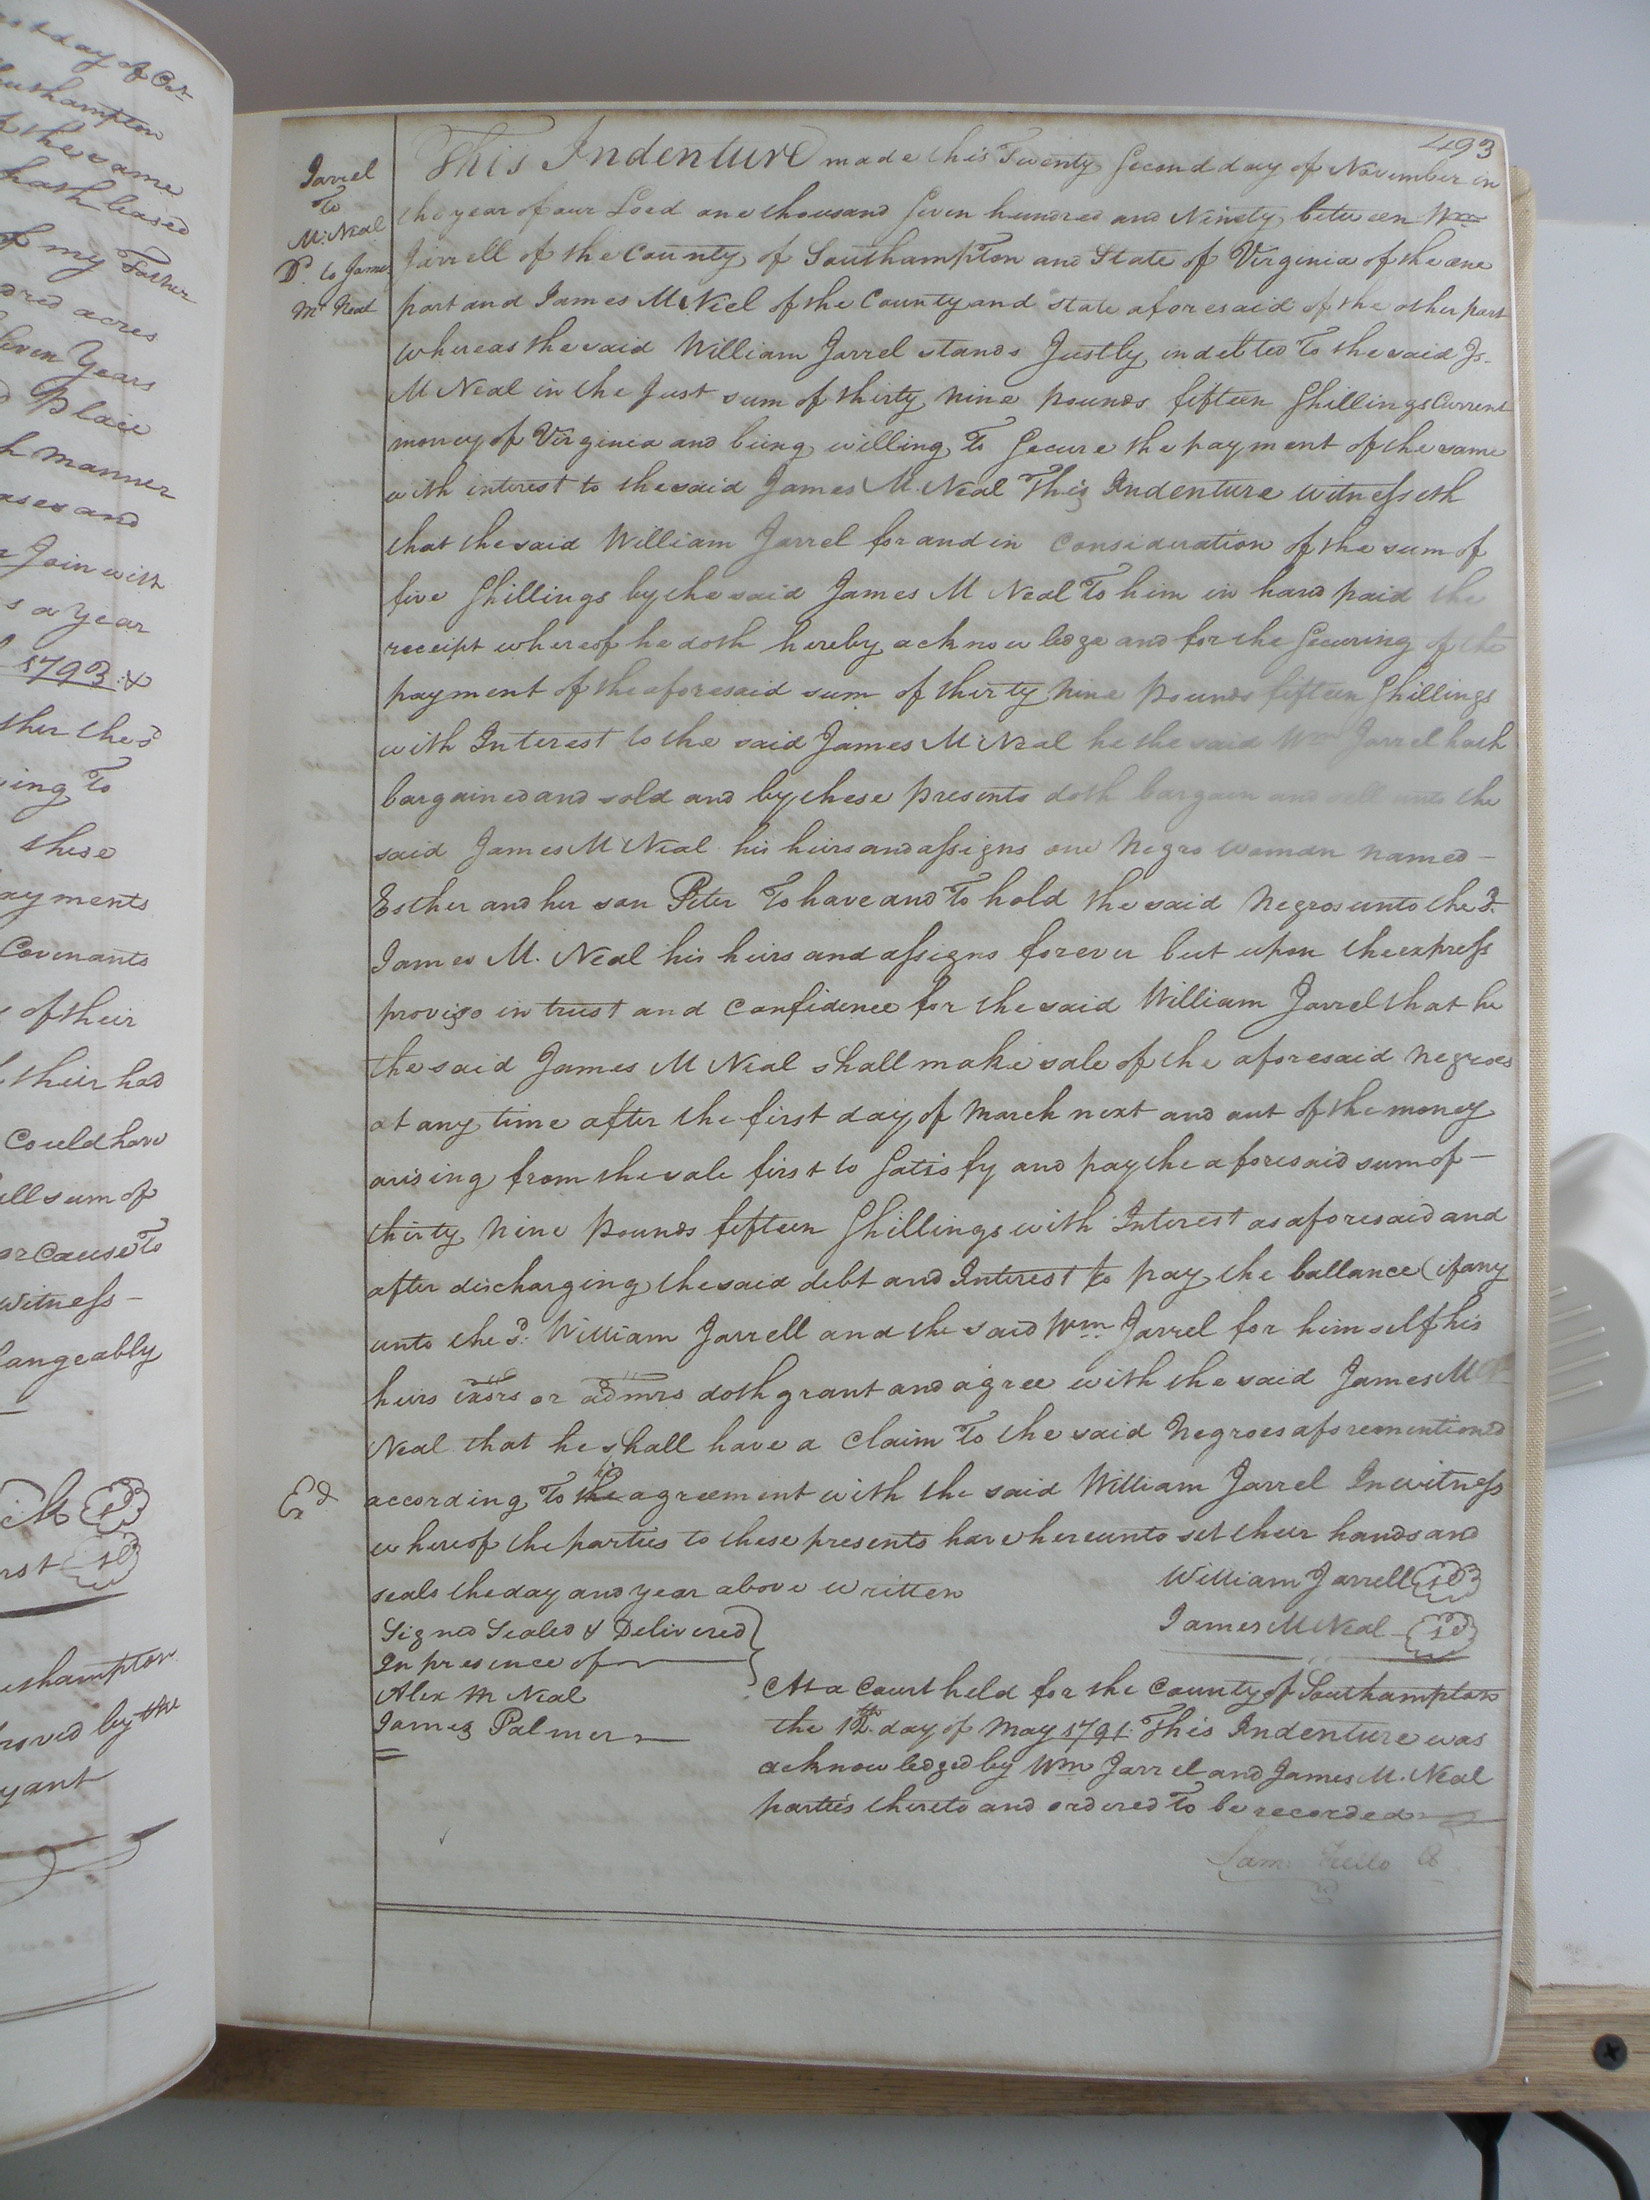 st day of Oct
Southampton
of the same
hath leased
of my Father
dred acres
Seven Years
Place
h manner
ases and
Join with
s a year
1793 :&
ther the sd
ing To
these
ayments
Covenants
of their
their had
Could have
ull sum of
or Cause To
Witness
angeably
rst
uthampton
roved by the
yant
493
Jarrel
To
McNeal
Dd. to James
Mc Neal
This Indenture made this Twenty Second day of November in
the year of our Lord one thousand Seven hundred and Ninety between Wm
Jarrell of the County of Southampton and State of Virginia of the one
part and James McNiel of the County and state aforesaid of the other part
whereas the said William Jarrel stands Justly indebted To the said Js.
McNeal in the Just sum of thirty Nine pounds fifteen Shillings Current
money of Virginia and being willing To Secure the payment of the same
with interest to the said James Mc.Neal This Indenture witnesseth
that the said William Jarrel for and in Consideration of the sum of
five Shillings by the said James Mc Neal To him in hand paid the
receipt whereof he doth hereby acknowledge and for the Securing of the
payment of the aforesaid sum of thirty Nine pounds fifteen Shillings
with Interest to the said James McNeal he the said Wm Jarrel hath
bargained and sold and by these presents doth bargain and sell unto the
said James McNeal his heirs and assigns one Negro Woman named —
Esther and her son Peter To have and To hold the said Negros unto the sd.
James Mc. Neal his heirs and assigns forever but upon the express
proviso in trust and Confidence for the said William Jarrel that he
the said James McNeal shall make sale of the aforesaid Negroes
at any time after the first day of March next and out of the money
arising from the sale first to Satisfy and pay the aforesaid sum of —
thirty Nine pounds fifteen Shillings with Interest as aforesaid and
after discharging the said debt and Interest to pay the ballance (if any
unto the sd. William Jarrell and the said Wm. Jarrel for himself his
heirs exors or admrs doth grant and agree with the said James Mc
Neal that he shall have a Claim To the said Negroes aforementioned
Exd
according To the his agreement with the said William Jarrel In witness
whereof the parties to these presents have hereunto set their hands and
seals the day and year above written
William Jarrell LS
James McNeal LS
Signed Sealed & Delivered
In presence of
Alex Mc Neal
James Palmer
At a Court held for the County of Southampton
the 12th. day of May 1791. This Indenture was
acknowledged by Wm Jarrel and James Mc.Neal
parties thereto and ordered To be recorded